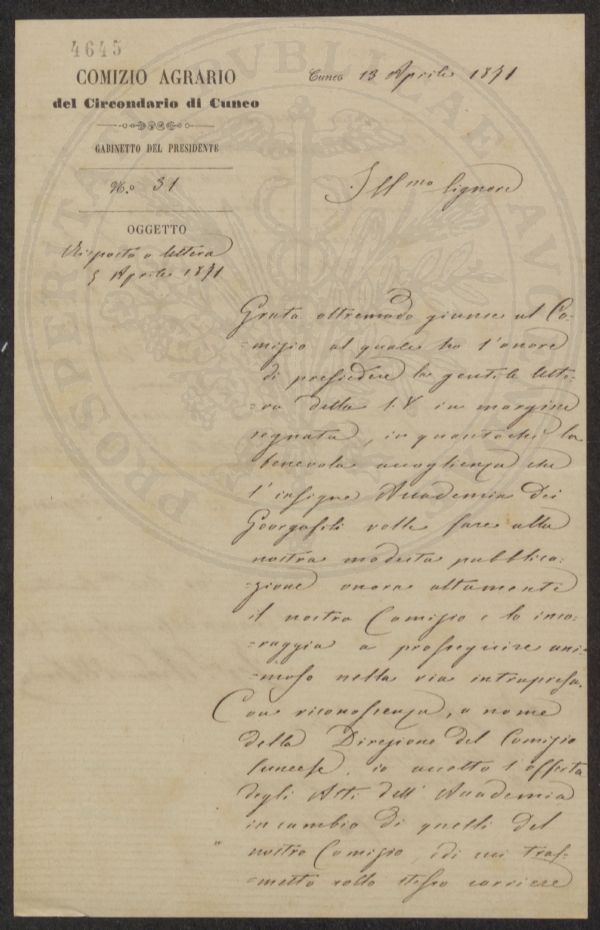 4645
COMIZIO AGRARIO
del Circondario di Cuneo
GABINETTO DEL PRESIDENTE
N.º 31
OGGETTO
Risposta a lettera
5 Aprile 1871
Cuneo 13 Aprile 1871
Ill.mo Signore
Grata oltremodo giunse al Co-
=mizio al quale ho l'onore
di presiedere la gentile lette-
=ra della S.V. in margine
segnata, in quantochè la
benevola accoglienza che
l'insigne Accademia dei
Georgofili volle fare alla
nostra modesta pubblica-
=zione onora altamente
il nostro Comizio e lo inco-
=raggia a proseguire ani-
=moso nella via intrapresa.
Con riconoscenza, a nome
della Direzione del Comizio
Cuneese, io accetto l'offerta
degli Atti dell'Accademia
in cambio di quelli del
nostro Comizio di cui tras-
=metto collo stesso corriere
PROSPERITATI PUBLICAE AUGENDAE